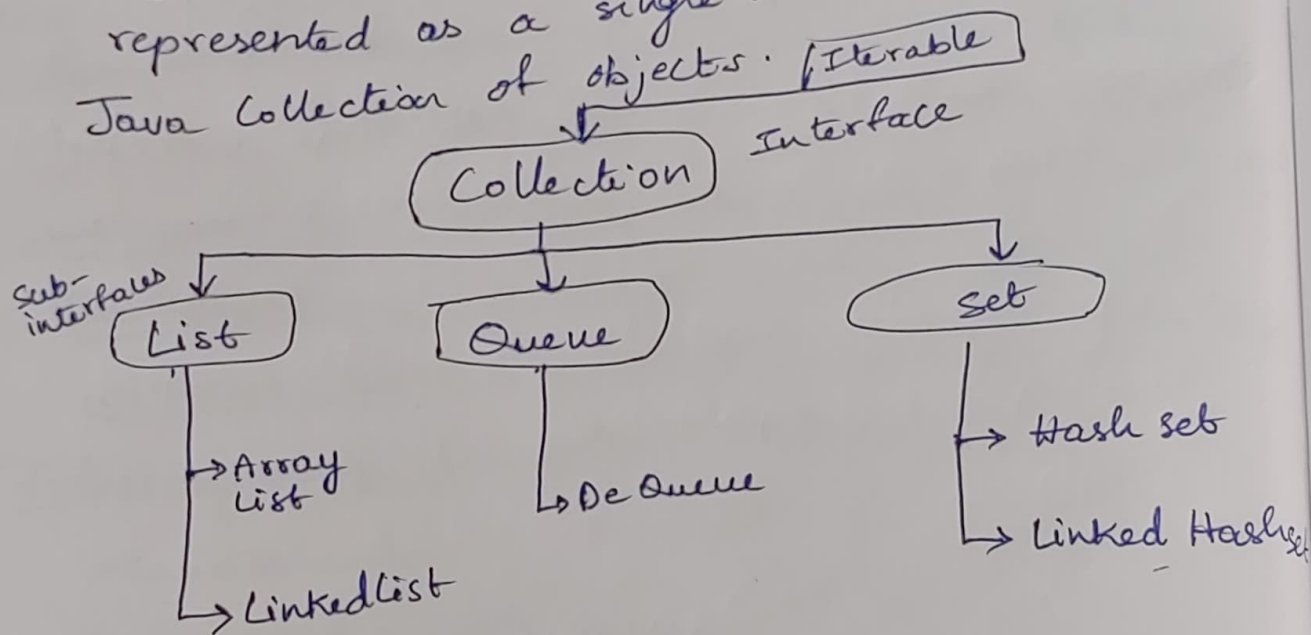 represented as a single
Java Collection of objects. Iterable
Interface
Collection
Sub-
interfaces
List
Queue
Set
Array
List
LinkedList
DeQueue
Hash set
Linked Hashset